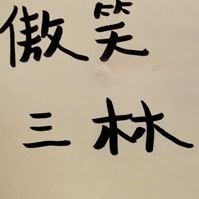 傲笑
三林